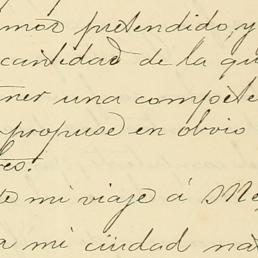 mos pretendido, y
cantidad de la qu
ner una compete
propuse en obvio
res.
te mi viaje á Me
a mi ciudad na